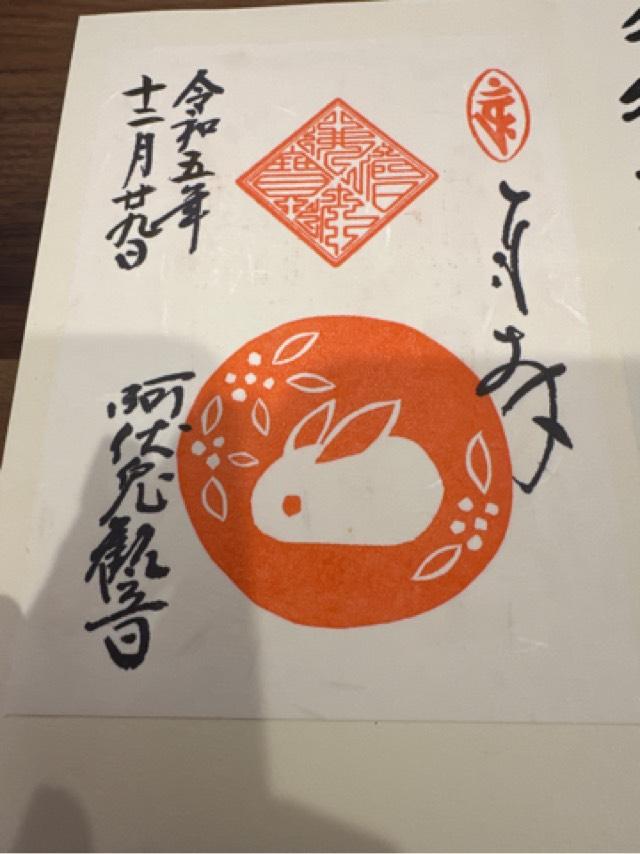 奉拝
令和五年
十二月廿九日
阿伏兎観音